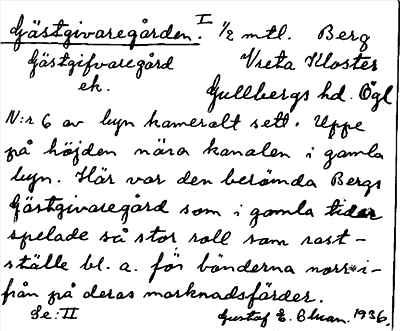 Gästgivaregården. I 1/2 mtl. Berg
Gästgifvaregård Vreta Kloster
ek. Gullbergs hd. Ögl
N:r 6 av byn kameralt sett. Uppe
på höjden nära kanalen i gamla
byn. Här var den berömda Bergs
Gästgivaregård som i gamla tider
spelade så stor roll som rast-
ställe bl. a. för bönderna norr i-
från på deras marknadsfärder.
Se: II Gustaf E. 1936.